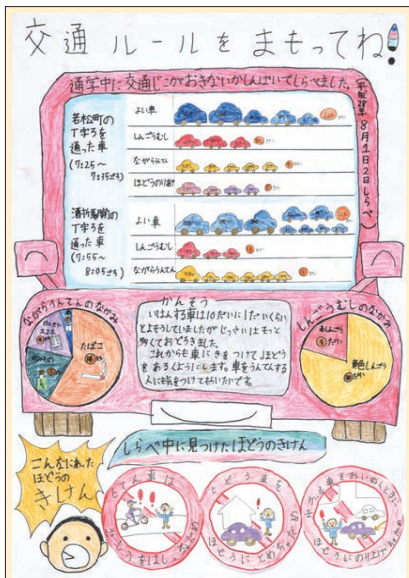 交通ルールをまもってね!
通学中に交通じこがおきないかしんぱいでしらべました。
(平成28年8月1日2日しらべ)
若松町の
丁字ろを
通った車
(7:25〜
7:35ごろ)
よい車
しんごうむし
ながらうんてん
ほどうのりあげ
酒折駅前の
丁字ろを
通った車
(7:55〜
8:05ごろ)
よい車
しんごうむし
ながらうんてん
ながらうんてんのなかみ
たばこ
スマホ
かんそう
いはんする車は10だいに1だいくらい
とよそうしていましたが じっさいはもっと
多くておどろきました。
これからも車に きをつけて ほどう
をあるくようにします。車をうんてんする
人にも気をつけてもらいたいです。
しんごうむしのなかみ
赤しんごう
黄色しんごう
しらべ中に見つけたほどうのきけん
こんなにあった
ほどうの
きけん
じてん車は
ほどうをはしっちゃだめ
ほどうにとめちゃだめ
ほどうにのり上げちゃだめ